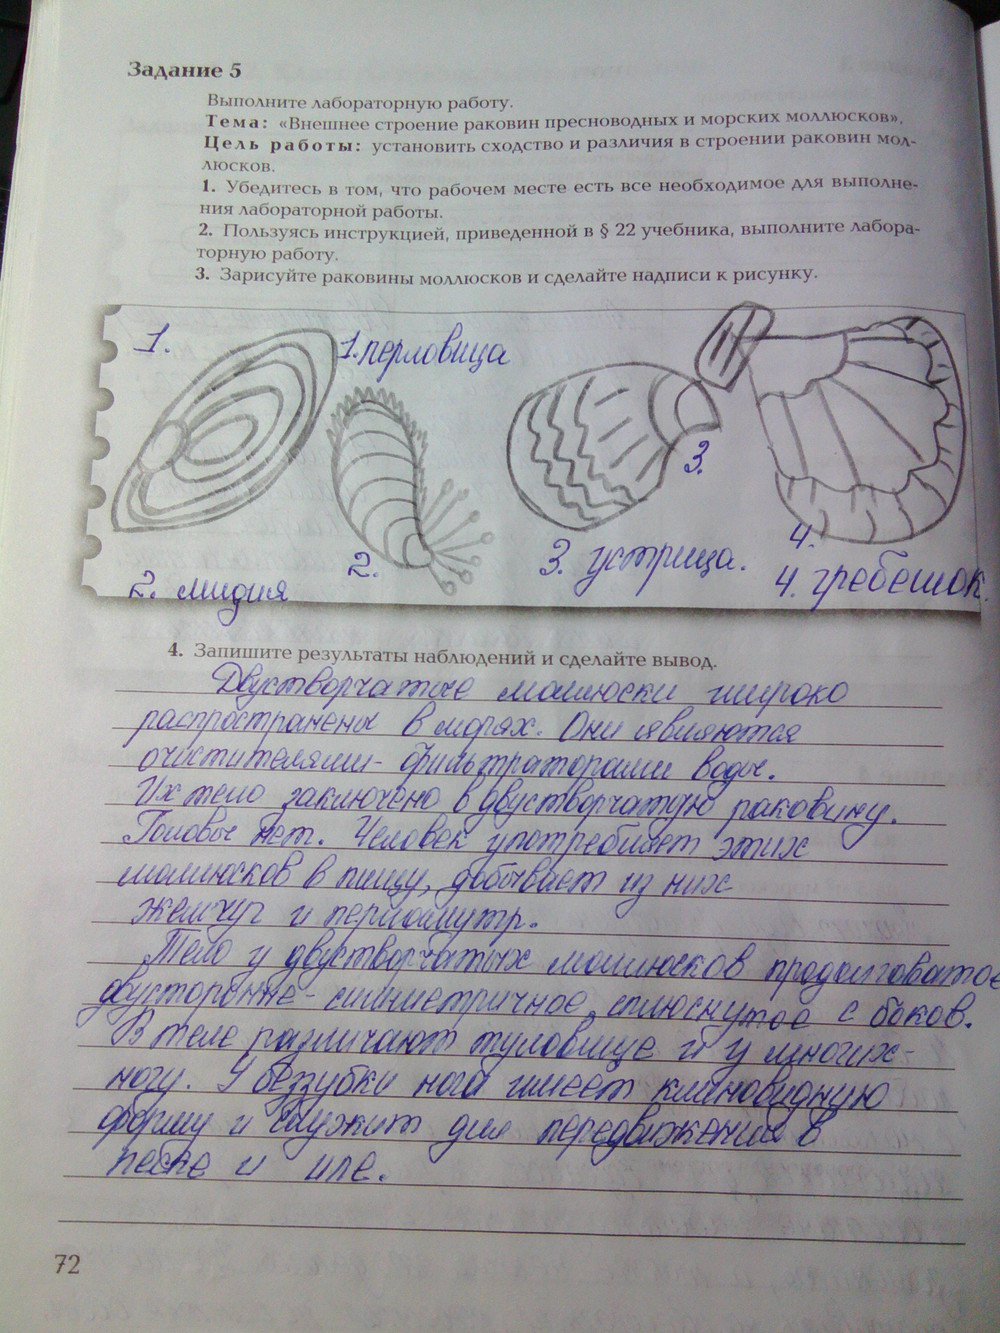 Задание 5
Выполните лабораторную работу.
Тема: «Внешнее строение раковин пресноводных и морских моллюсков»,
Цель работы: установить сходство и различия в строении раковин мол-
люсков.
1. Убедитесь в том, что рабочем месте есть все необходимое для выполне-
ния лабораторной работы.
2. Пользуясь инструкцией, приведенной в § 22 учебника, выполните лабора-
торную работу.
3. Зарисуйте раковины моллюсков и сделайте надписи к рисунку.
1.
1. перловица
3.
2.
3. устрица.
4.
2. мидия
4. гребешок.
4. Запишите результаты наблюдений и сделайте вывод.
Двустворчатые моллюски широко
распространены в морях. Они являются
очистителями-фильтраторами воды.
Их тело заключено в двустворчатую раковину.
Головы нет. Человек употребляет этих
моллюсков в пищу, добывает из них
жемчуг и перламутр.
Тело у двустворчатых моллюсков продолговатое
двусторонне-симметричное, сплюснутое с боков.
В теле различают туловище и у многих-
ногу. У беззубки нога имеет клиновидную
форму и служит для передвижения в
песке и иле.
72